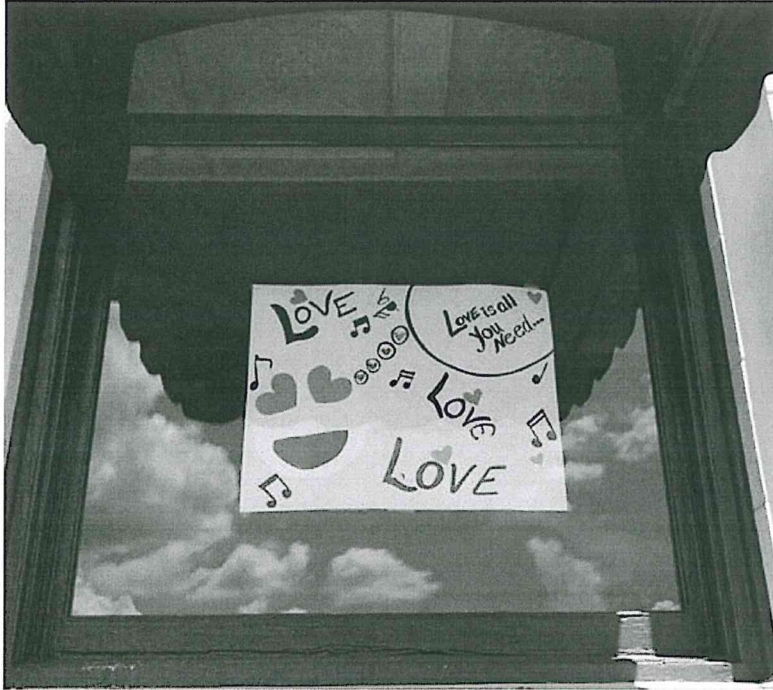 LOVE
Love is all
you
Need...
LOVE
LOVE